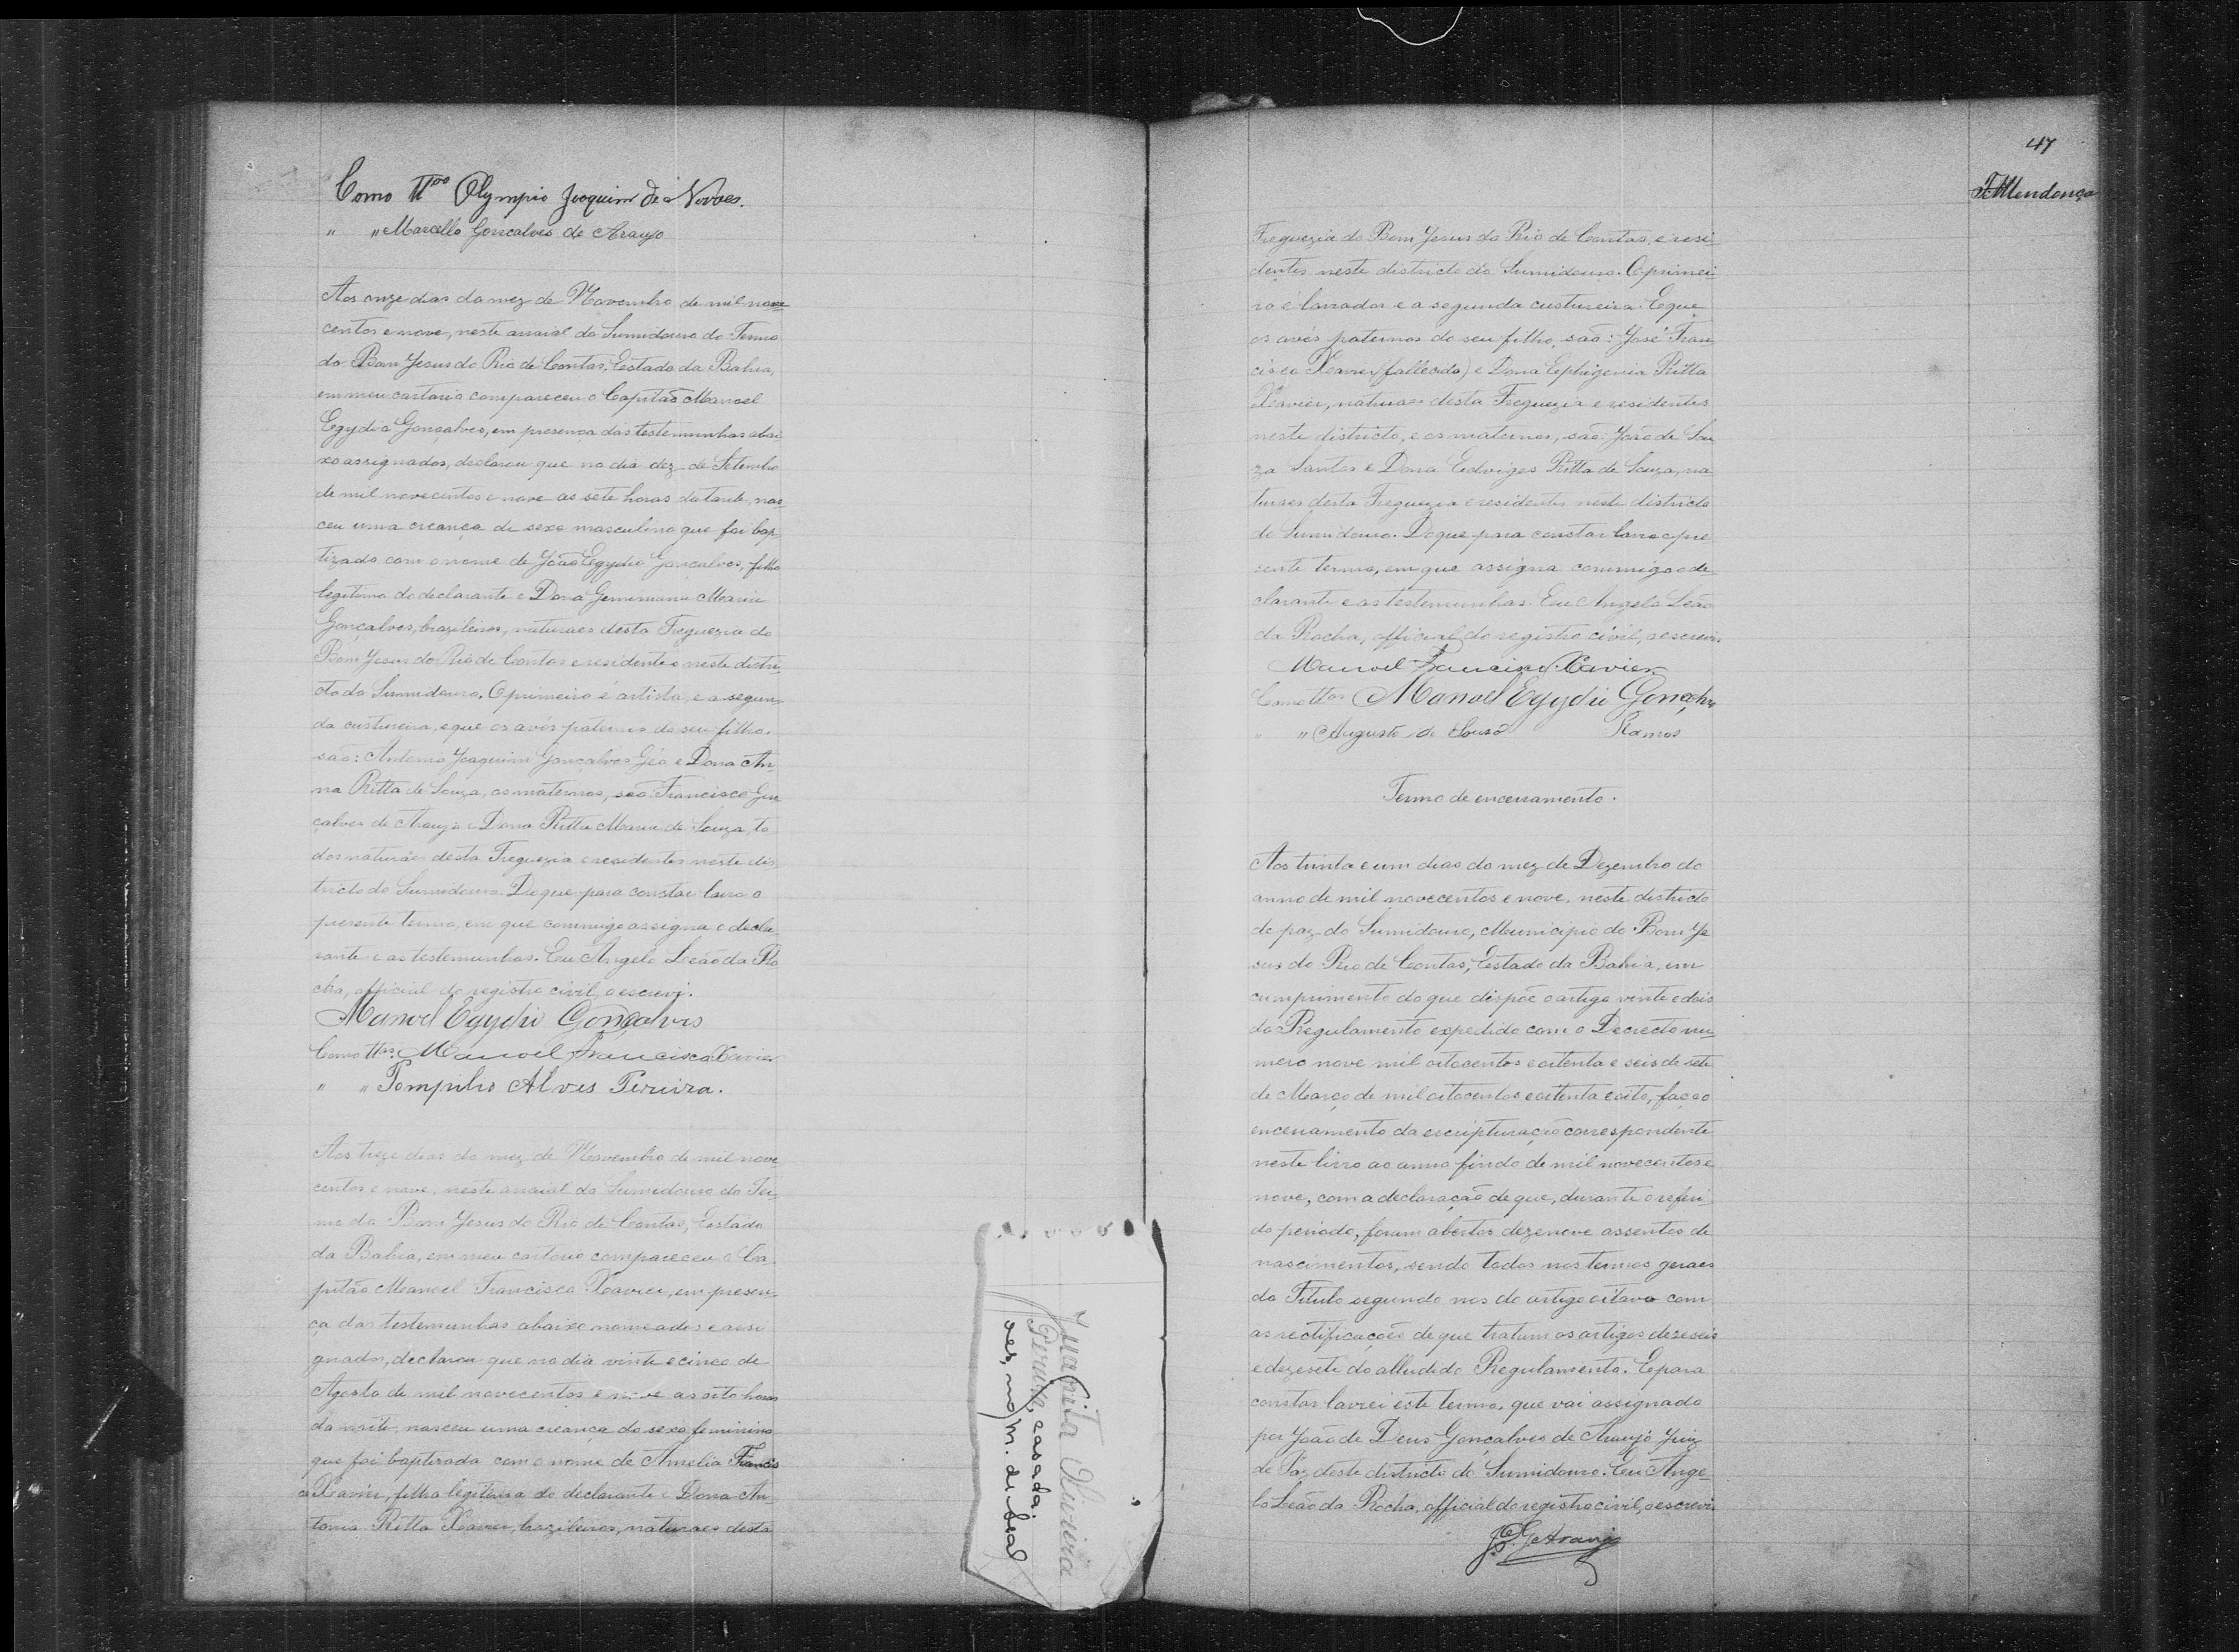 Como ttas Olympio Joaquim de Novaes.
" " Marcello Gonçalves de Araujo
Aos onze dias do mez de Novembro de mil nove
centos e nove, neste arraial do Sumidouro do Termo
do Bom Jesus do Rio de Contas, Estado da Bahia,
em meu cartorio compareceu o Capitão Manoel
Egydio Gonçalves, em presença das testemunhas abai
xo assignados, declarou que no dia dez de Setembro
de mil novecentos e nove as sete horas da tarde, nas
ceu uma creança de sexo masculino que foi bap
tizado com o nome de João Egydio Gonçalves, filho
legitimo do declarante e Dona Maria
Gonçalves, brazileiros, naturaes desta Freguezia do
Bom Jesus do Rio de Contas e residentes neste distri
cto do Sumidouro. O primeiro é artista, e a segun
da custureira, e que os avós paternos do seu filho,
são: Antonio Joaquim Gonçalves Géo e Dona An
na Ritta de Souza, os maternos, são: Francisco Gon
çalves de Araujo e Dona Ritta Maria de Souza, to
dos naturaes desta Freguezia e residentes neste dis
tricto do Sumidouro. Do que para constar lavro o
presente termo, em que commigo assigna o decla
rante e as testemunhas. Eu Angelo Leão da Ro
cha, official do registro civil, o escrevi.
Manoel Egydio Gonçalves
Como ttas. Manoel Francisco Xavier
" " Pompilio Alves Pereira.
Aos treze dias do mez de Novembro de mil nove
centos e nove, neste arraial do Sumidouro do Ter
mo do Bom Jesus do Rio de Contas, Estado
da Bahia, em meu cartorio compareceu o Ca
pitão Manoel Francisco Xavier, em presen
ça das testemunhas abaixo nomeados e assi
gnados, declarou que no dia vinte e cinco de
Agosto de mil novecentos e nove as oito horas
da noite, nasceu uma creança do sexo feminino
que foi baptisada com o nome de Amelia Francis
ca Xavier, filha legitima do declarante e Dona An
tonia Ritta Xavier, brazileiros, naturaes desta
Juanita
Pereira, casada:
47
F. Mendonça
Freguezia do Bom Jesus do Rio de Contas, e resi
dentes neste districto do Sumidouro. O primei
ro é lavrador e a segunda custureira. E que
os avós paternos do seu filho, são: José Fran
cisco Xavier (fallecido) e Dona Ephigenia Ritta
Xavier, naturaes desta Freguezia e residentes
neste districto, e os maternos, são: João de Sou
za Santos e Dona Edviges Ritta de Souza, na
turaes desta Freguezia e residentes neste districto
do Sumidouro. Do que para constar lavro o pre
sente termo, em que assigna commigo o de
clarante e as testemunhas. Eu Angelo Leão
da Rocha, official do registro civil, o escrevi.
Manoel Francisco Xavier
Como ttas Manoel Egydio Gonçalves
" " Augusto de Souza Ramos
Termo de encerramento.
Aos trinta e um dias do mez de Dezembro do
anno de mil novecentos e nove, neste districto
de paz do Sumidouro, Municipio do Bom Je
sus do Rio de Contas, Estado da Bahia, em
cumprimento do que dispõe o artigo vinte e dois
do Regulamento expedido com o Decreto nu
mero nove mil oitocentos e oitenta e seis de sete
de Março de mil oitocentos e oitenta e oito, faço o
encerramento da escripturação correspondente
neste livro ao anno findo de mil novecentos e
nove, com a declaração de que, durante o referi
do periodo, foram abertos dezenove assentos de
nascimentos, sendo todos nos termos geraes
do Titulo segundo nos do artigo oitavo com
as rectificações de que tratam os artigos dezeseis
e dezesete do alludido Regulamento. E para
constar lavrei este termo, que vai assignado
por João de Deus Gonçalves de Araujo Juiz
de Paz deste districto do Sumidouro. Eu Ange
lo Leão da Rocha, official do registro civil, o escrevi
J. D. G. Araujo